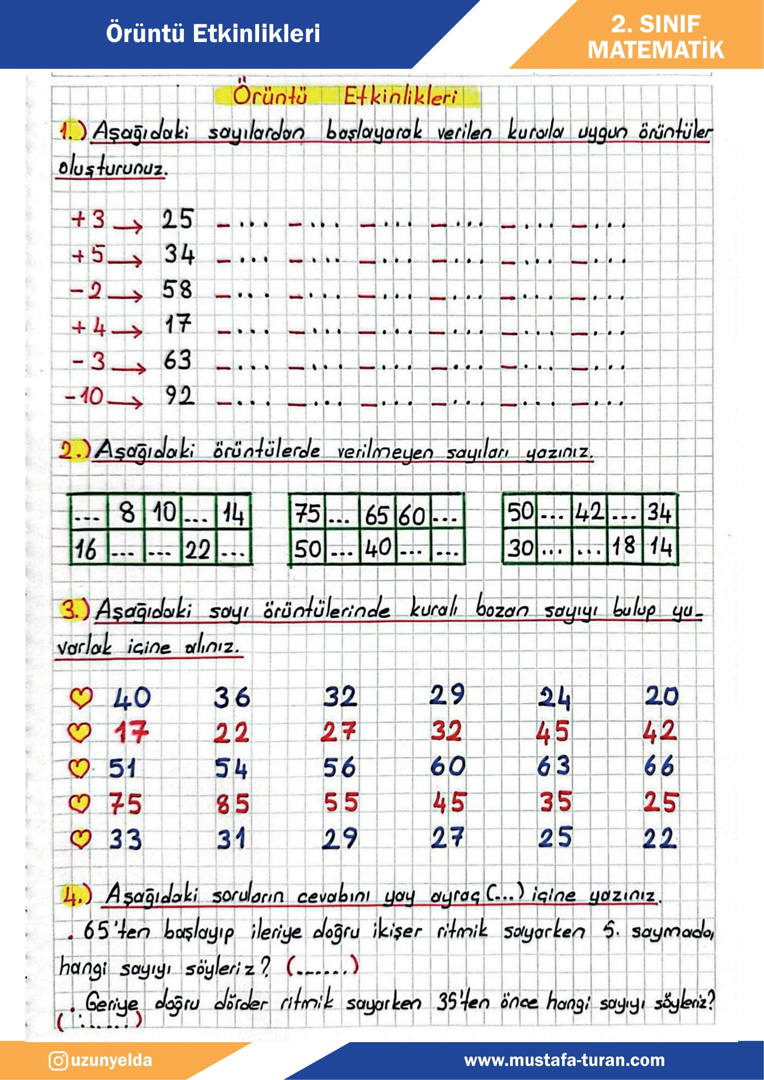 Örüntü Etkinlikleri
2. SINIF
MATEMATİK
Örüntü Etkinlikleri
1.) Aşağıdaki sayılardan başlayarak verilen kurala uygun örüntüler
oluşturunuz.
+3 → 25 _... _... _... _... _... _...
+5 → 34 _... _... _... _... _... _...
-2 → 58 _... _... _... _... _... _...
+4 → 17 _... _... _... _... _... _...
-3 → 63 _... _... _... _... _... _...
-10 → 92 _... _... _... _... _... _...
2.) Aşağıdaki örüntülerde verilmeyen sayıları yazınız.
... 8 10 ... 14 75 ... 65 60 ... 50 ... 42 ... 34
16 ... ... 22 ... 50 ... 40 ... ... 30 ... ... 18 14
3.) Aşağıdaki sayı örüntülerinde kuralı bozan sayıyı bulup yu_
varlak içine alınız.
40 36 32 29 24 20
17 22 27 32 45 42
51 54 56 60 63 66
75 85 55 45 35 25
33 31 29 27 25 22
4.) Aşağıdaki soruların cevabını yay ayraç (...) içine yazınız.
. 65'ten başlayıp ileriye doğru ikişer ritmik sayarken 5. saymada,
hangi sayıyı söyleriz? (......)
. Geriye doğru dörder ritmik sayarken 35'ten önce hangi sayıyı söyleriz?
(......)
uzunyelda
www.mustafa-turan.com